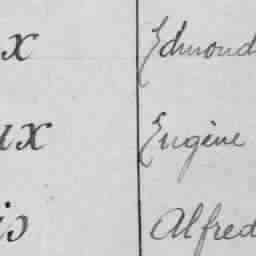 x Edmond
ux Eugène
is Alfred